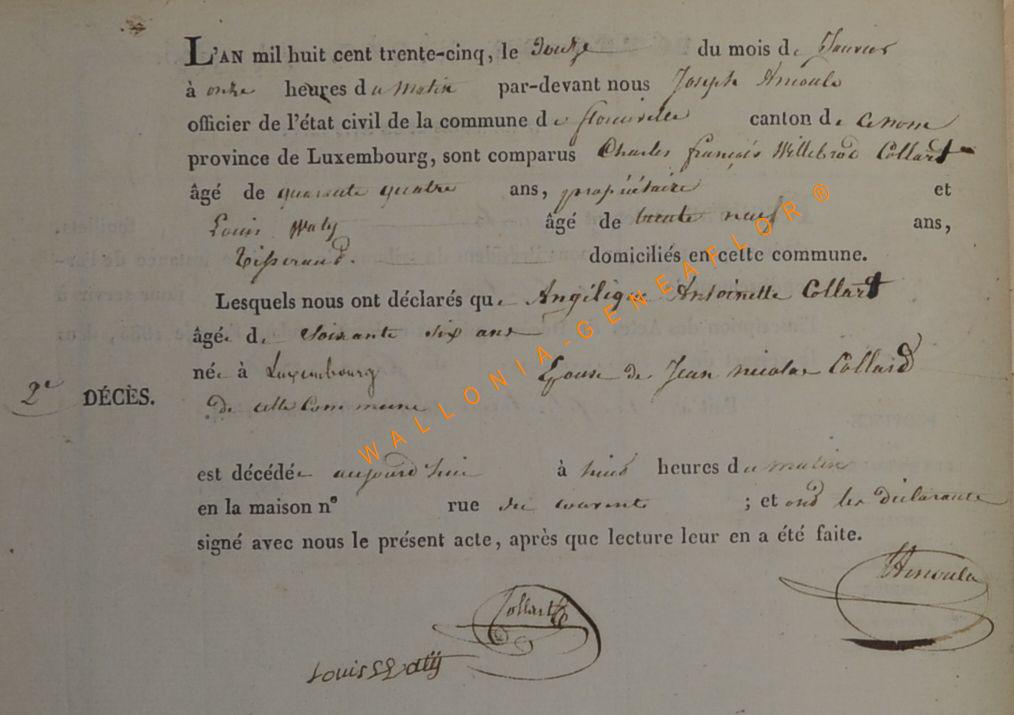 L'AN mil huit cent trente-cinq, le douze du mois de Janvier
à onze heures du matin par-devant nous Joseph Arnould
officier de l'état civil de la commune de florenville canton de ce nom
province de Luxembourg, sont comparus Charles françois Willebrod Collart
âgé de quarante quatre ans, propriétaire et
Louis Waty âgé de trente neuf ans,
Tisserand. domiciliés en cette commune.
Lesquels nous ont déclarés que Angélique Antoinette Collart
âgée de soixante six ans
née à Luxembourg Epouse de Jean nicolas Collard
2e DÉCÈS. de cette Commune
est décédée aujourd'hui à huit heures du matin
en la maison nº rue du ; et ont les déclarants
signé avec nous le présent acte, après que lecture leur en a été faite.
Arnould
Collart
Louis Waty
WALLONIA-GENEAFLOR®